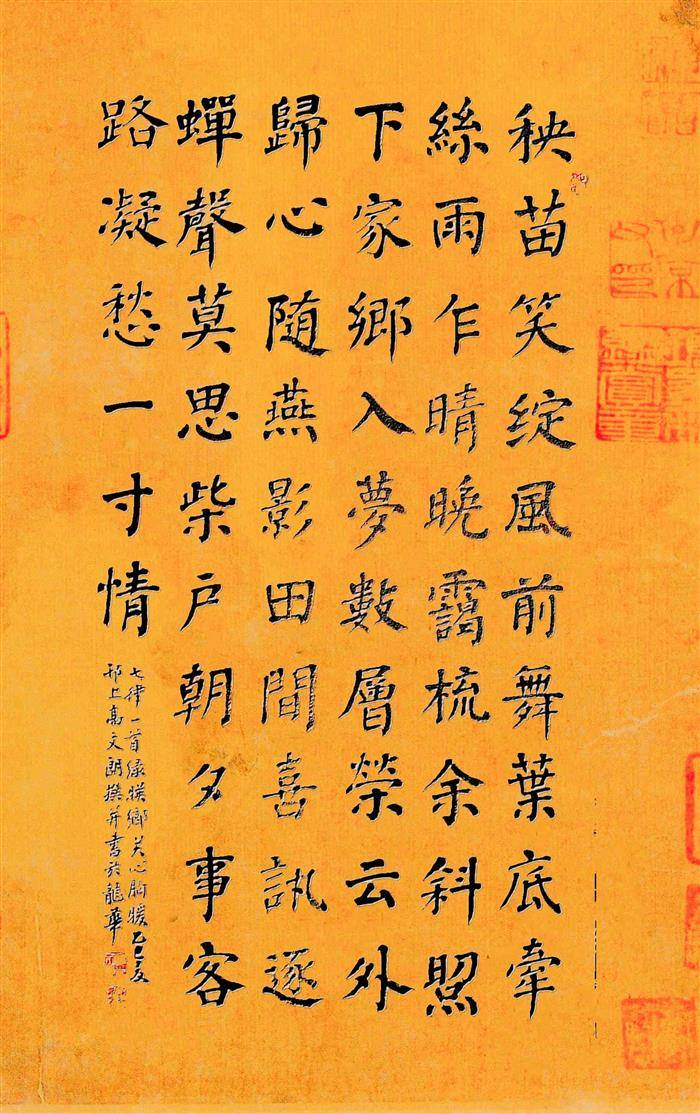 秧苗笑綻風前舞葉底牽
絲雨乍晴曉靄梳余斜照
下家鄉入夢數層榮云外
歸心随燕影田間喜訊逐
蟬聲莫思柴戶朝夕事客
路凝愁一寸情
七律一首緑映鄉关心胸暖乙巳夏
邗上高文朗撰并書於龍華